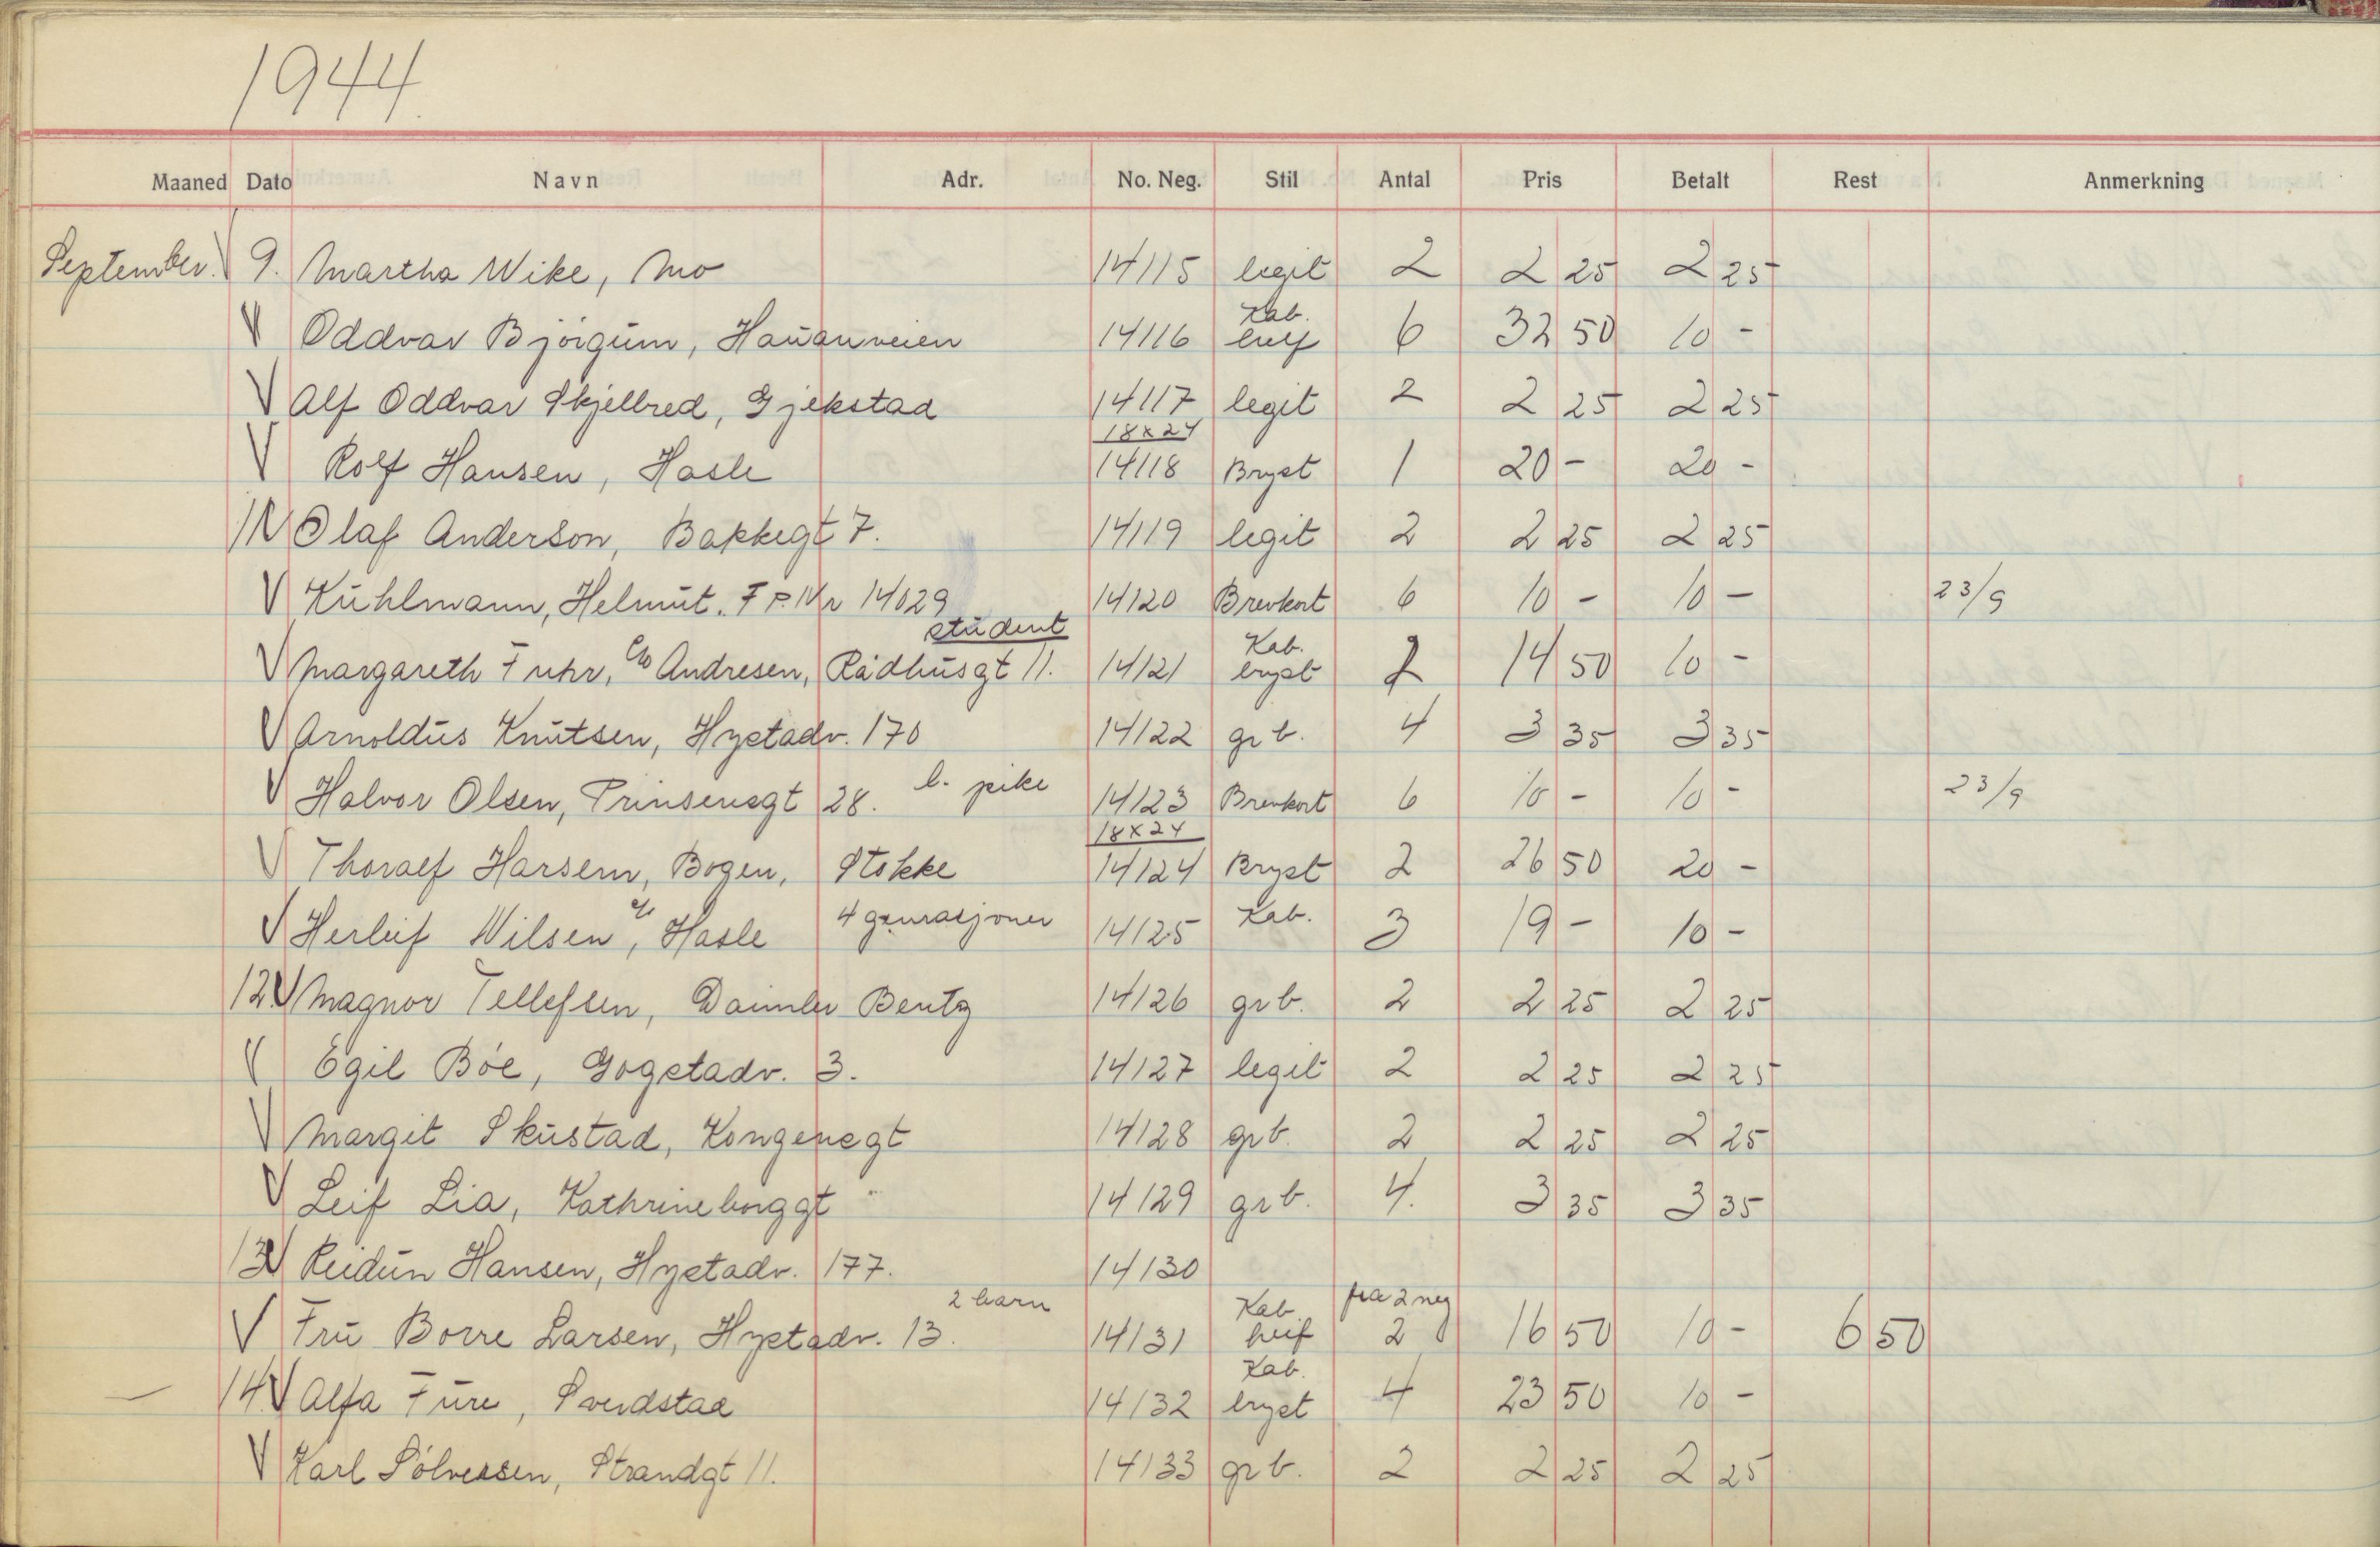 1944.
Maaned Dato Navn Adr. No. Neg. Stil Antal Pris Betalt Rest Anmerkning
September. 9. Martha Wike, Mo 14115 legit 2 2 25 2 25
Oddvar Bjørgum, Hauanveien 14116 Kab. 6 32 50 10 -
Alf Oddvar Skjelbred, Gjekstad 14117 legit 2 2 25 2 25
18x24
Rolf Hansen, Hasle 14118 Bryst 1 20 - 20 -
11 Olaf Anderson, Bakkegt 7. 14119 legit 2 2 25 2 25
Kühlmann, Helmut. F P. Nr 14029 14120 Brevkort 6 10 - 10 - 23/9
student
Margareth Fuhr, c/o Andresen, Rådhusgt 11. 14121 Kab. bryst 2 14 50 10 -
Arnoldus Knutsen, Hystadv. 170 14122 grb. 4 3 35 3 35
Halvor Olsen, Prinsensgt 28. l. pike 14123 Brevkort 6 10 - 10 - 23/9
18x24
Thoralf Harsem, Bogen, Stokke 14124 Bryst 2 26 50 20 -
Herleif Nilsen, Hasle 4 generasjoner 14125 Kab. 3 19 - 10 -
12. Magnor Tellefsen, Daimler Bentz 14126 grb. 2 2 25 2 25
Egil Bøe, Gogstadv. 3. 14127 legit 2 2 25 2 25
Margit Skustad, Kongensgt 14128 grb. 2 2 25 2 25
Leif Lia, Kathrineborggt 14129 grb. 4. 3 35 3 35
13 Reidun Hansen, Hystadv. 177. 14130
2 barn
Fru Borre Larsen, Hystadv. 13. 14131 Kab heif fra 2 neg 2 16 50 10 - 6 50
14. Alfa Fure, Sverdstad 14132 Kab. bryst 4 23 50 10 -
Karl Sølvessen, Strandgt 11. 14133 grb. 2 2 25 2 25